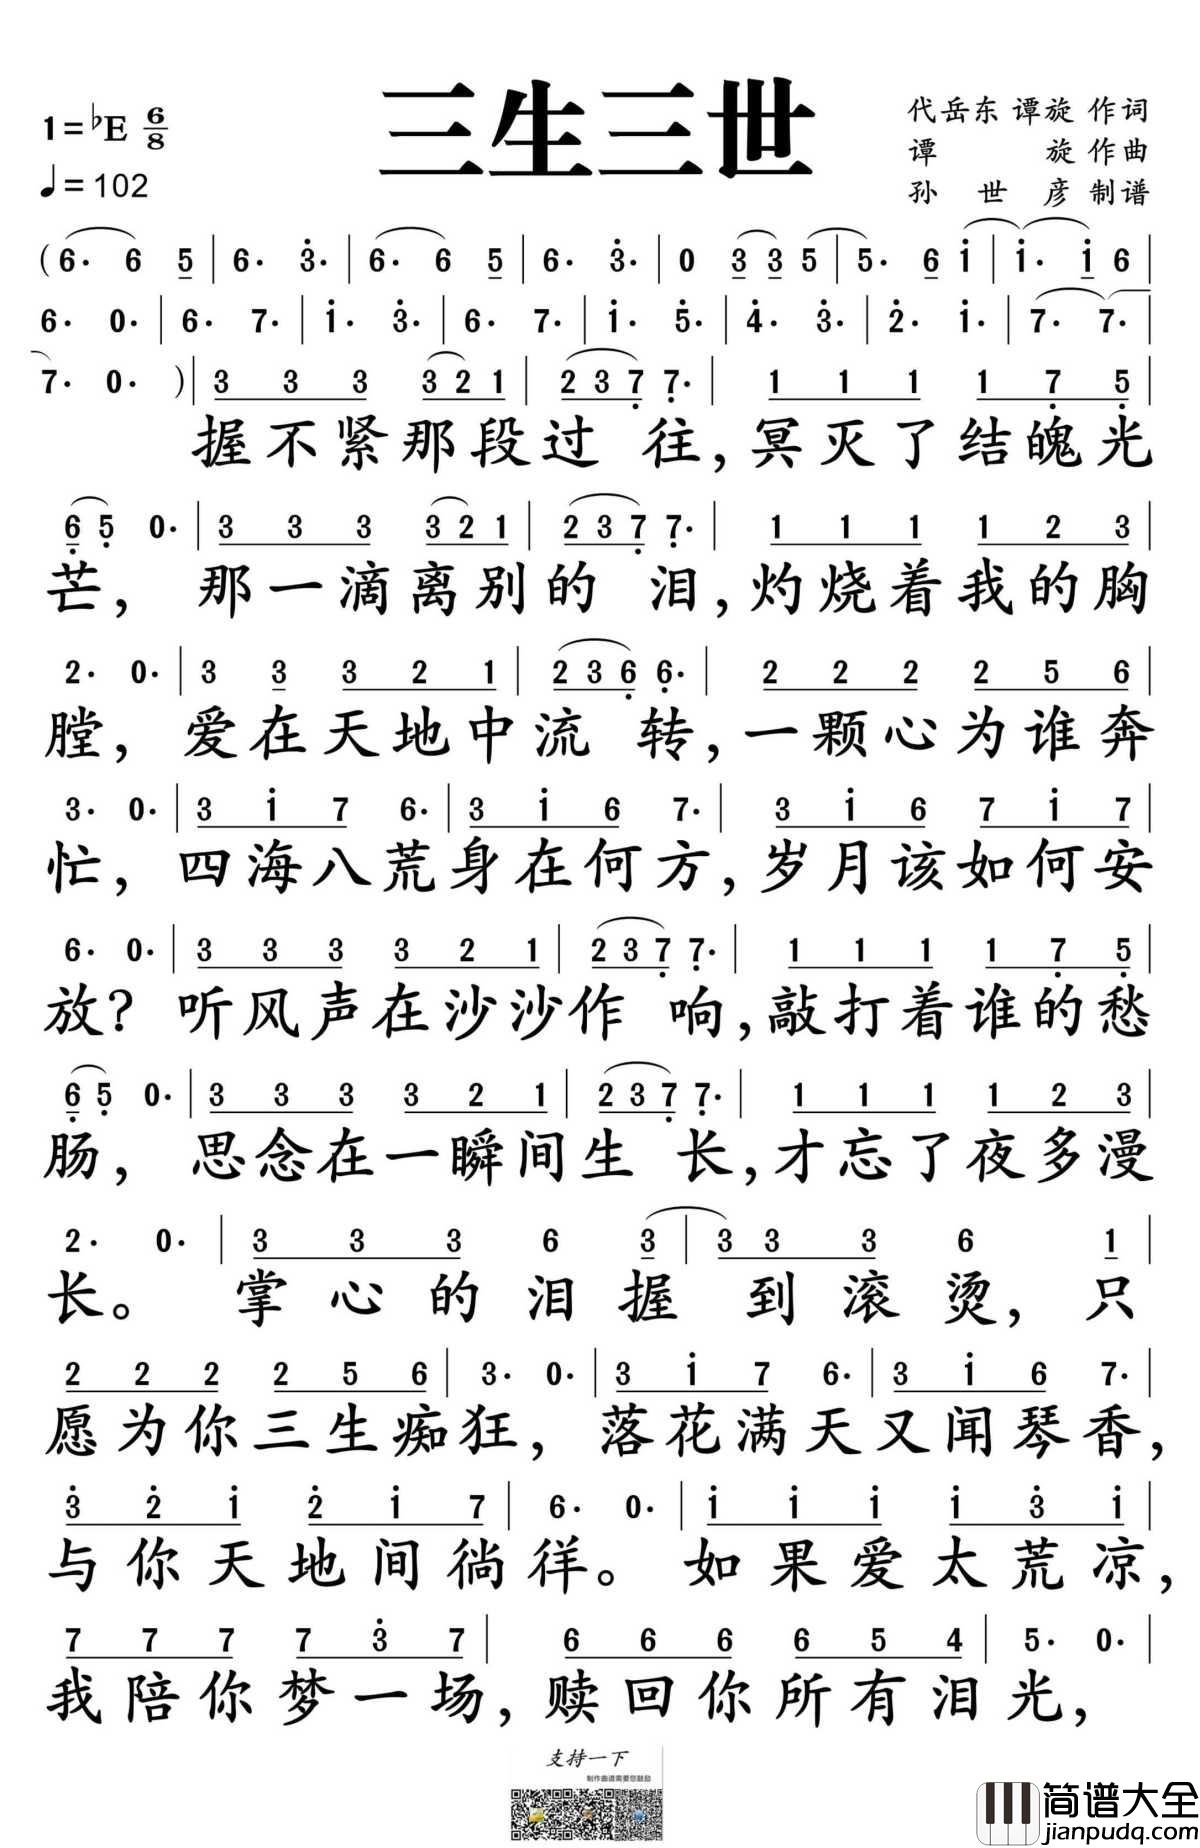 三生三世
1=♭E 6/8
♩=102
代岳东 谭旋 作词
谭 旋 作曲
孙 世 彦 制谱
(6· 6 5 | 6· 3̇· | 6· 6 5 | 6· 3̇· | 0 3 3 5 | 5· 6 i | i· i 6 |
6· 0· | 6· 7· | i· 3̇· | 6· 7· | i· 5̇· | 4̇· 3̇· | 2̇· i· | 7· 7· |
7· 0· ) | 3 3 3 3 2 1 | 2 3 7̣ 7̣· | 1 1 1 1 7̣ 5̣ |
握不紧那段过 往,冥灭了结魄光
6̣ 5̣ 0· | 3 3 3 3 2 1 | 2 3 7̣ 7̣· | 1 1 1 1 2 3 |
芒, 那一滴离别的 泪,灼烧着我的胸
2· 0· | 3 3 3 2 1 | 2 3 6̣ 6̣· | 2 2 2 2 5 6 |
膛, 爱在天地中流 转,一颗心为谁奔
3· 0· | 3 i 7 6· | 3 i 6 7· | 3 i 6 7 i 7 |
忙, 四海八荒身在何方,岁月该如何安
6· 0· | 3 3 3 3 2 1 | 2 3 7̣ 7̣· | 1 1 1 1 7̣ 5̣ |
放? 听风声在沙沙作 响,敲打着谁的愁
6̣ 5̣ 0· | 3 3 3 3 2 1 | 2 3 7̣ 7̣· | 1 1 1 1 2 3 |
肠, 思念在一瞬间生 长,才忘了夜多漫
2· 0· | 3 3 3 6 3 | 3 3 3 6 1 |
长。 掌心的泪握 到滚烫,只
2 2 2 2 5 6 | 3· 0· | 3 i 7 6· | 3 i 6 7· |
愿为你三生痴狂, 落花满天又闻琴香,
3̇ 2̇ i 2̇ i 7 | 6· 0· | i i i i 3̇ i |
与你天地间徜徉。 如果爱太荒凉,
7 7 7 7 3̇ 7 | 6 6 6 6 5 4 | 5· 0· |
我陪你梦一场,赎回你所有泪光,
支持一下
制作曲谱需要您鼓励
简谱大全
jianpudq.com